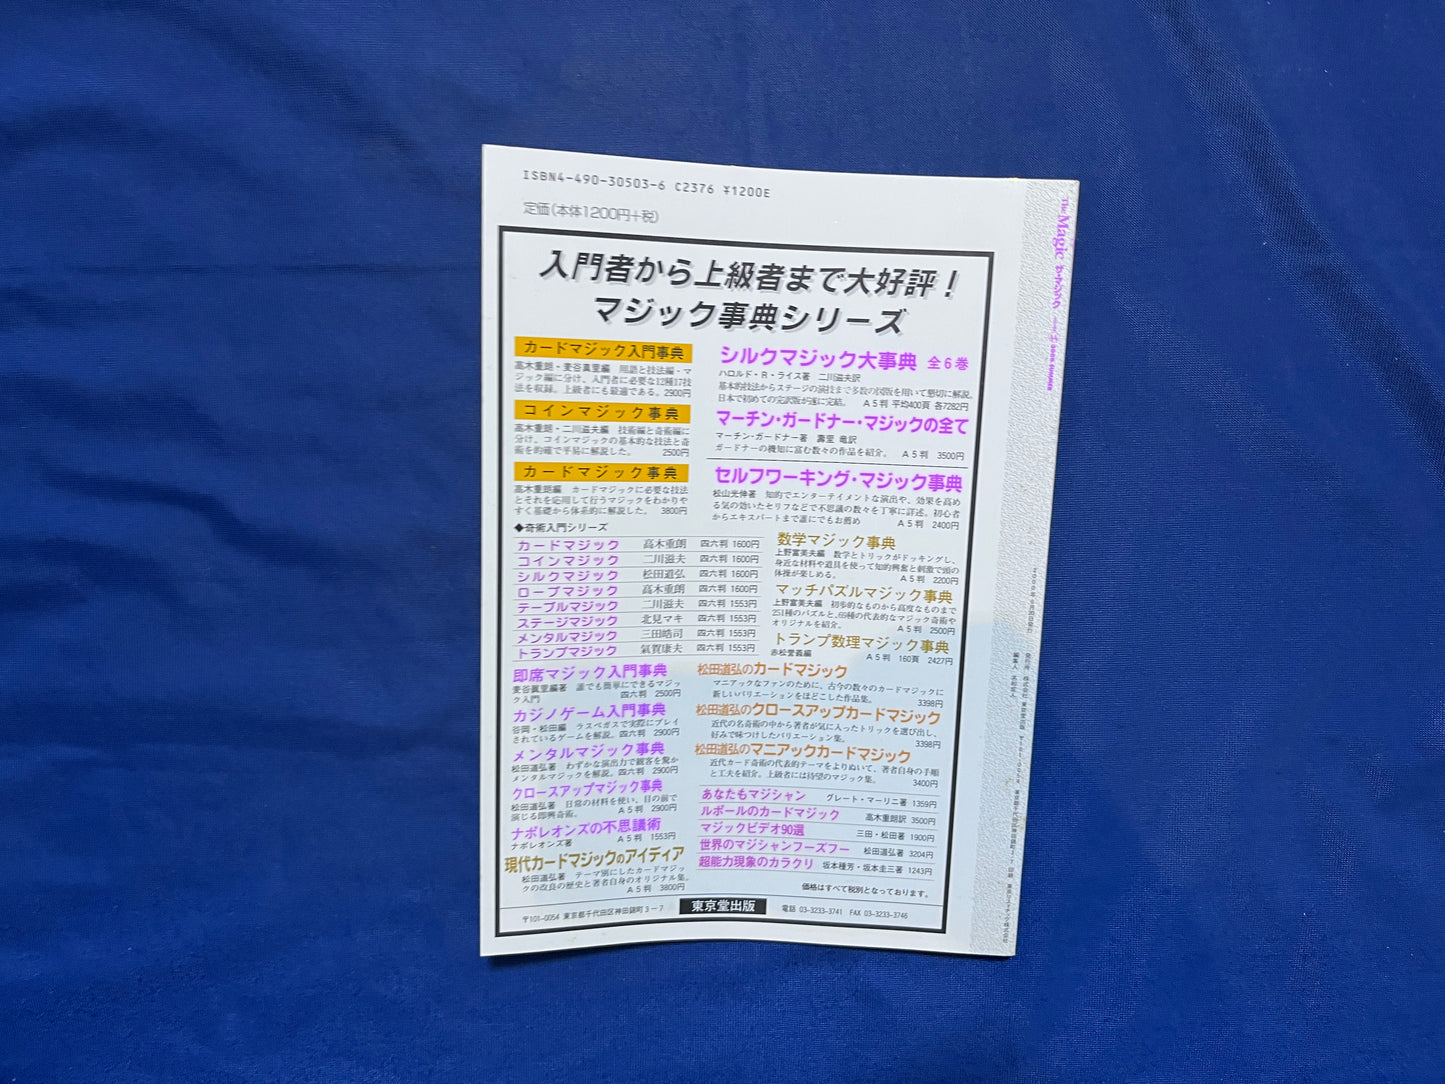 ISBN4-490-30503-6 C2376 ¥1200E
定価(本体1200円+税)
入門者から上級者まで大好評!
マジック事典シリーズ
カードマジック入門事典
高木重朗・麦谷眞里編 用語と技法編・マ
ジック編に分け、入門者に必要な12種17技
法を収録。上級者にも最適である。2900円
コインマジック事典
高木重朗・二川滋夫編 技術編と奇術編に
分け、コインマジックの基本的な技法と奇
術を的確で平易に解説した。 2500円
カードマジック事典
高木重朗編 カードマジックに必要な技法
とそれを応用して行うマジックをわかりや
すく基礎から体系的に解説した。 3800円
◆奇術入門シリーズ
カードマジック 高木重朗 四六判 1600円
コインマジック 二川滋夫 四六判 1600円
シルクマジック 松田道弘 四六判 1600円
ロープマジック 高木重朗 四六判 1600円
テーブルマジック 二川滋夫 四六判 1553円
ステージマジック 北見マキ 四六判 1553円
メンタルマジック 三田皓司 四六判 1553円
トランプマジック 氣賀康夫 四六判 1553円
即席マジック入門事典
麦谷眞里編著 誰でも簡単にできるマジッ
ク入門 四六判 2500円
カジノゲーム入門事典
谷岡・松田編 ラスベガスで実際にプレイ
されているゲームを解説。四六判 2900円
メンタルマジック事典
松田道弘著 わずかな演出力で観客を驚か
メンタルマジックを解説。四六判 2900円
クロースアップマジック事典
松田道弘著 日常の材料を使い、目の前で
演じる即興奇術。 A5判 2900円
ナポレオンズの不思議術
ナポレオンズ著 A5判 1553円
現代カードマジックのアイディア
松田道弘著 テーマ別にしたカードマジッ
クの改良の歴史と著者自身のオリジナル集。
A5判 3800円
シルクマジック大事典 全6巻
ハロルド・R・ライス著 二川滋夫訳
基本的技法からステージの演技まで多数の図版を用いて懇切に解説。
日本で初めての完訳版が遂に完結。 A5判 平均400頁 各7282円
マーチン・ガードナー・マジックの全て
マーチン・ガードナー著 壽里 竜訳
ガードナーの機知に富む数々の作品を紹介。 A5判 3500円
セルフワーキング・マジック事典
松山光伸著 知的でエンターテイメントな演出や、効果を高め
る気の効いたセリフなどで不思議の数々を丁寧に詳述。初心者
からエキスパートまで誰にでもお薦め A5判 2400円
数学マジック事典
上野富美夫編 数学とトリックがドッキングし、
身近な材料や道具を使って知的興奮と刺激で頭の
体操が楽しめる。 A5判 2200円
マッチパズルマジック事典
上野富美夫編 初歩的なものから高度なものまで
251種のパズルと、69種の代表的なマジック奇術や
オリジナルを紹介。 A5判 2500円
トランプ数理マジック事典
赤松愛義編 A5判 160頁 2427円
松田道弘のカードマジック
マニアックなファンのために、古今の数々のカードマジックに
新しいバリエーションをほどこした作品集。 3398円
松田道弘のクロースアップカードマジック
近代の名奇術の中から著者が気に入ったトリックを選び出し、
好みで味つけしたバリエーション集。 3398円
松田道弘のマニアックカードマジック
近代カード奇術の代表的テーマをよりぬいて、著者自身の手順
と工夫を紹介。上級者には待望のマジック集。 3400円
あなたもマジシャン グレート・マーリニ著 1359円
ルポールのカードマジック 高木重朗訳 3500円
マジックビデオ90選 三田・松田著 1900円
世界のマジシャンフーズフー 松田道弘著 3204円
超能力現象のカラクリ 坂本種芳・坂本圭三著 1243円
価格はすべて税別となっております。
〒101-0054 東京都千代田区神田錦町3-7 東京堂出版 電話 03-3233-3741 FAX 03-3233-3746
The Magic ザ・マジック